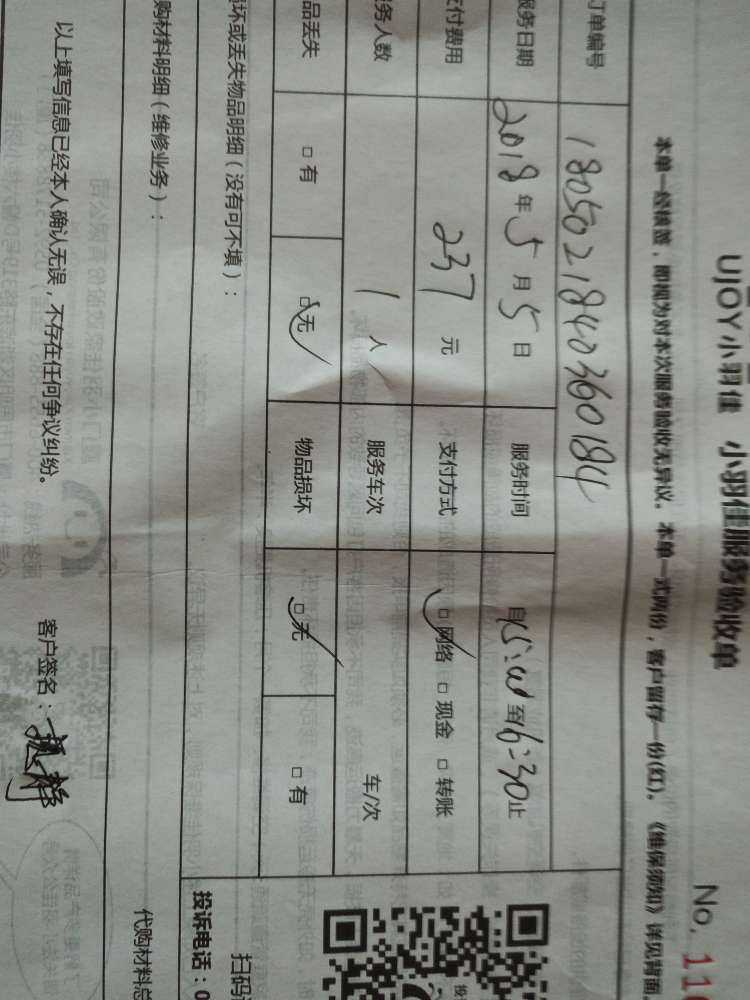 UJOY小羽佳 小羽佳服务验收单
No. 11
本单一经核签，即视为对本次服务验收无异议。本单一式两份，客户留存一份(红)。《维保须知》详见背面
订单编号 1805021840360184
服务日期 2018年5月5日 服务时间 自15:00至16:30止
支付费用 237元 支付方式 □网络 □现金 □转账
服务人数 1人 服务车次 车/次
品丢失 □有 □无 物品损坏 □无 □有
损坏或丢失物品明细（没有可不填）：
扫码
投诉电话：0
购材料明细（维修业务）：
代购材料总
以上填写信息已经本人确认无误，不存在任何争议纠纷。 客户签名：